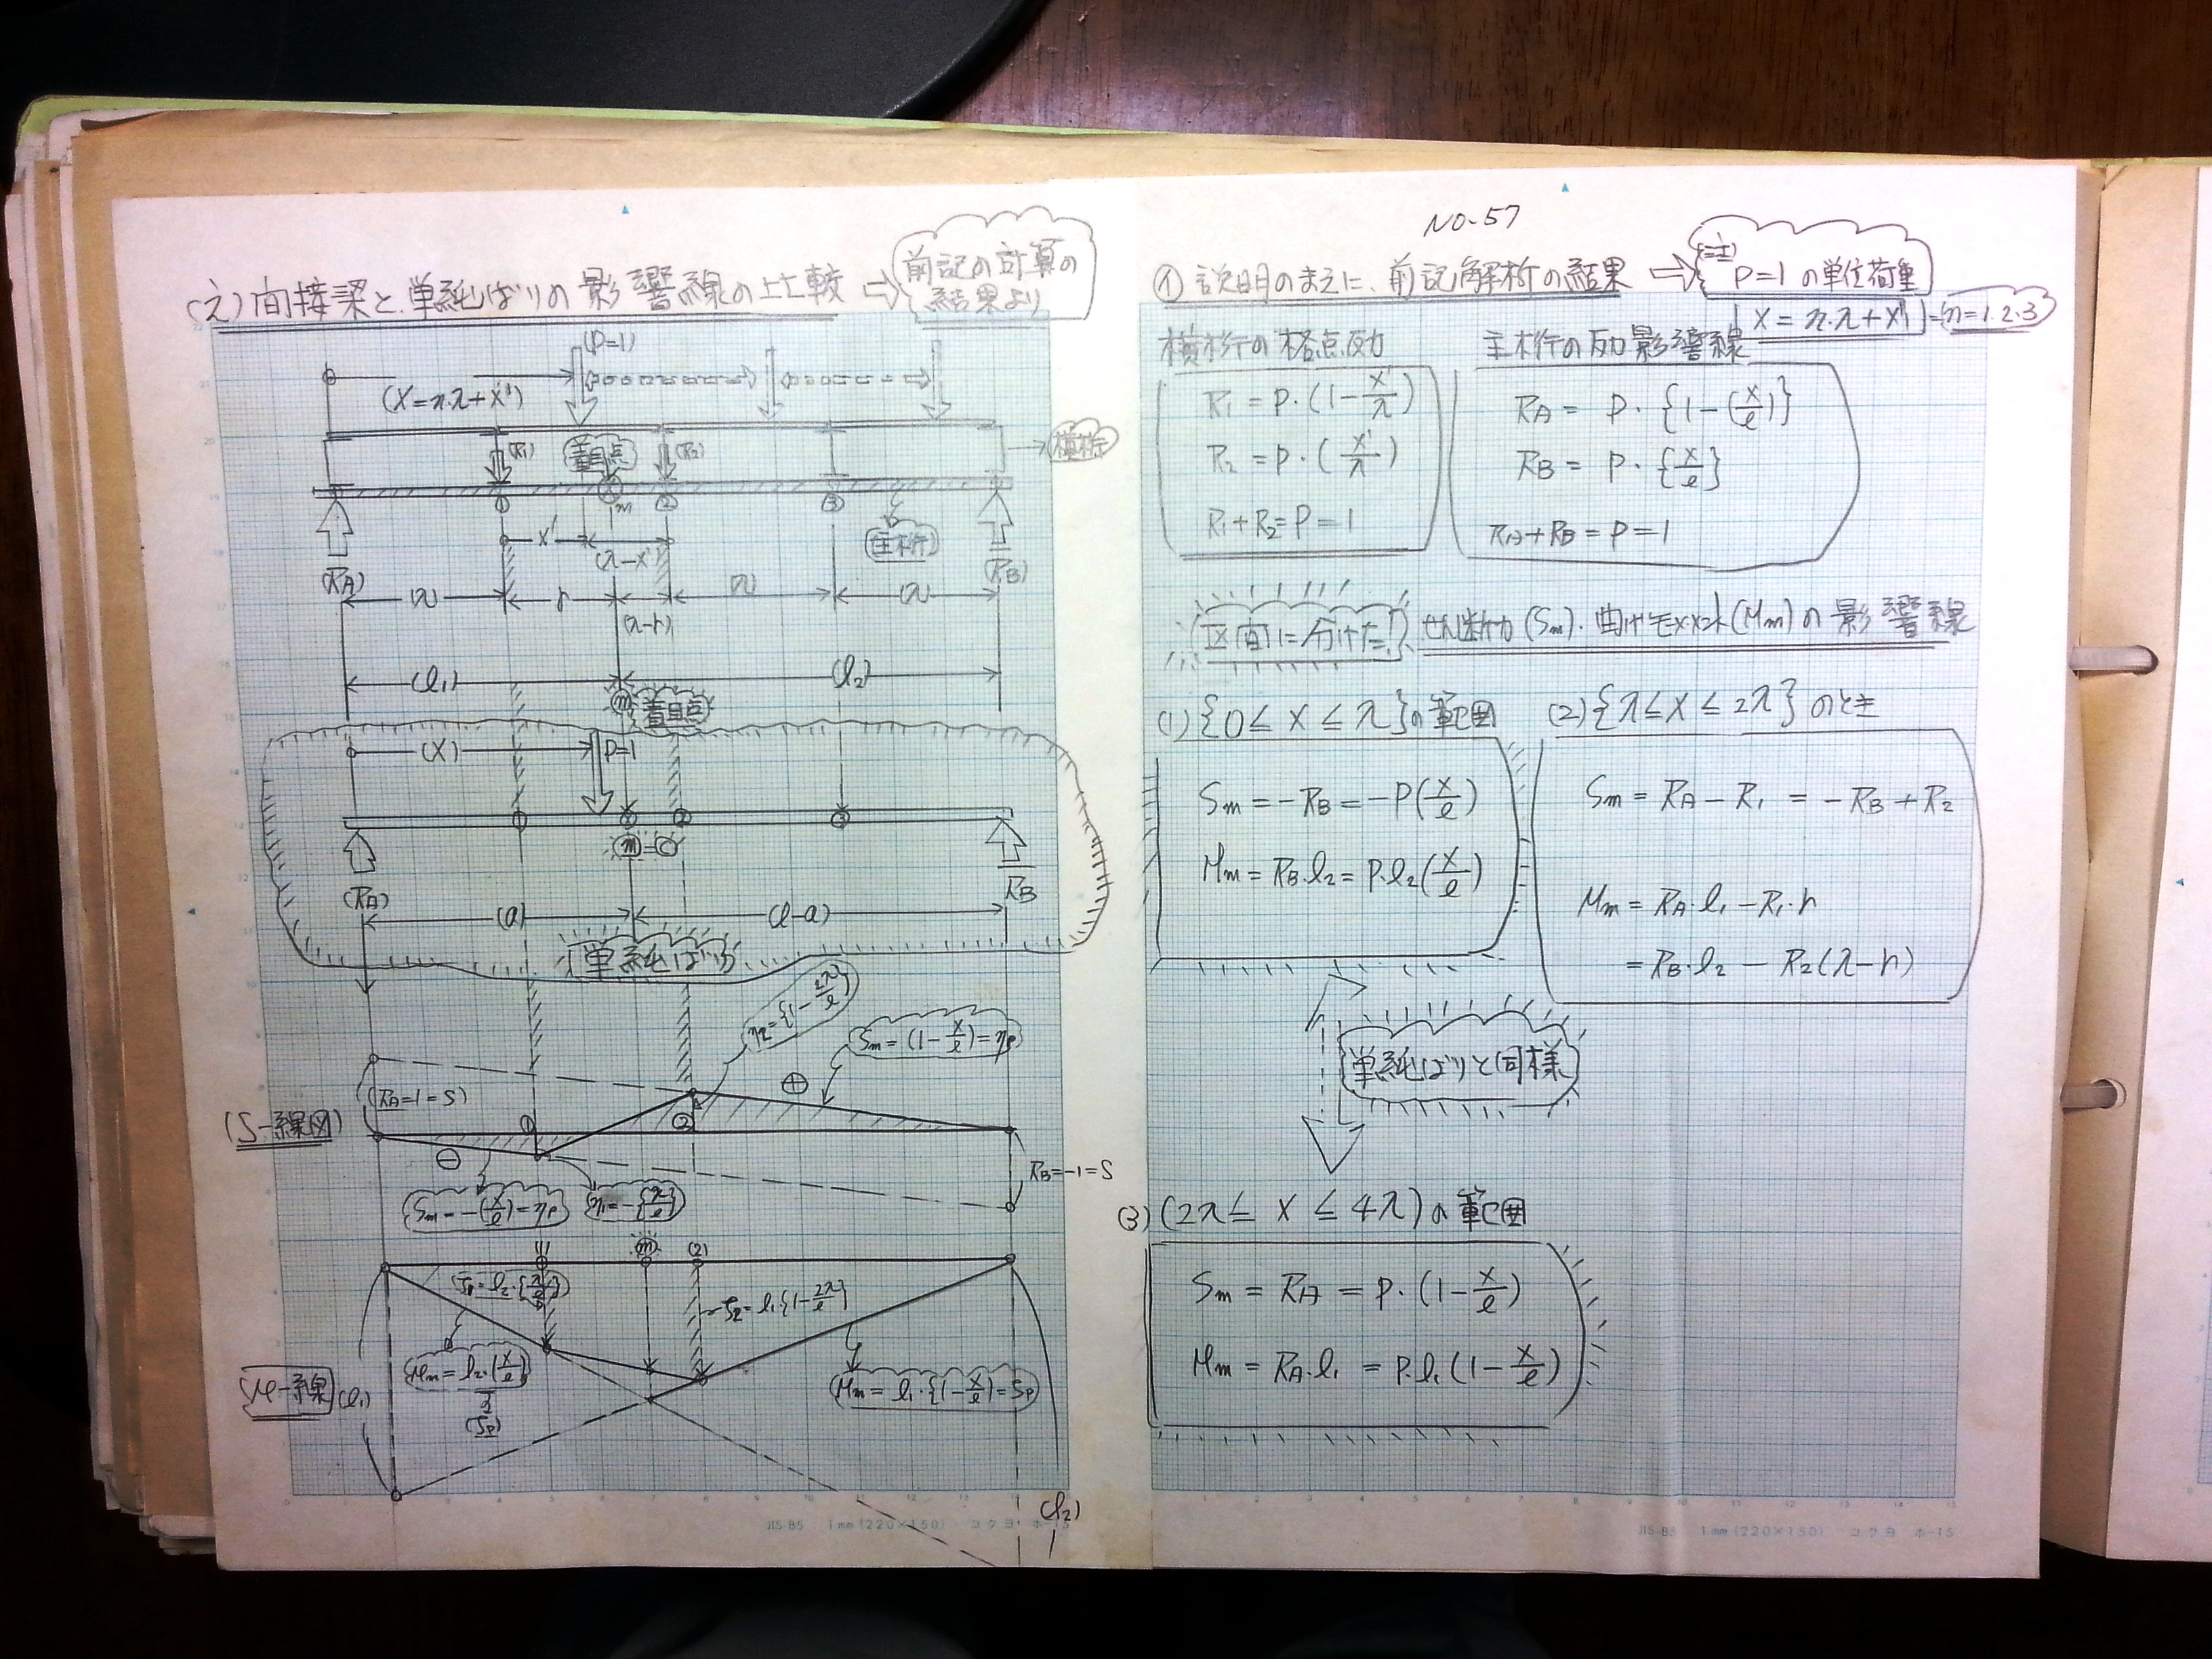 (え) 間接梁と、単純ばりの影響線の比較 ⇨ 前記の計算の
結果より
(P=1)
(X=n・λ+X')
(R1)
着目点
(R2)
横桁
①
m
②
③
X'
(λ-X')
主桁
(RA)
(RB)
(λ)
r
(λ)
(λ)
(λ-r)
(l1)
(l2)
m 着目点
(X)
P=1
①
②
③
m=C
(RA)
RB
(a)
(l-a)
単純ばり
η2={1-2λ/l}
Sm=(1-x/l)=ηp
(RA=1=S)
⊕
(S-線図)
①
②
⊖
RB=-1=S
Sm=-(x/l)=ηp
η1=-{λ/l}
m
(2)
ζ1=l2・{λ/l}
ζ2=l1{1-2λ/l}
(M-線)
(l1)
Mm=l2・(x/l)
(ζp)
Mm=l1・{1-x/l}=ζp
(l2)
JIS-B5 1mm (220×150) コクヨ ホ-15
NO-57
① 説明のまえに、前記解析の結果 ⇨ P=1 の単位荷重
X=n・λ+X' =(n=1.2.3)
横桁の格点反力
R1=P・(1-X'/λ)
R2=P・(X'/λ)
R1+R2=P=1
主桁の反力影響線
RA=P・{1-(x/l)}
RB=P・{x/l}
RA+RB=P=1
区間に分けた! せん断力(Sm)・曲げモーメント(Mm)の影響線
(1) {0≦X≦λ}の範囲
Sm=-RB=-P(x/l)
Mm=RB・l2=P・l2(x/l)
(2) {λ≦X≦2λ}のとき
Sm=RA-R1=-RB+R2
Mm=RA・l1-R1・r
=RB・l2-R2(λ-r)
単純ばりと同様
(3) (2λ≦X≦4λ)の範囲
Sm=RA=P・(1-x/l)
Mm=RA・l1=P・l1(1-x/l)
JIS-B5 1mm (220×150) コクヨ ホ-15